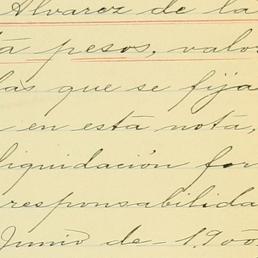 Alvarez de la
ta pesos, valor
las que se fija
en esta nota,
liquidación for
responsabilida
Junio de 1900